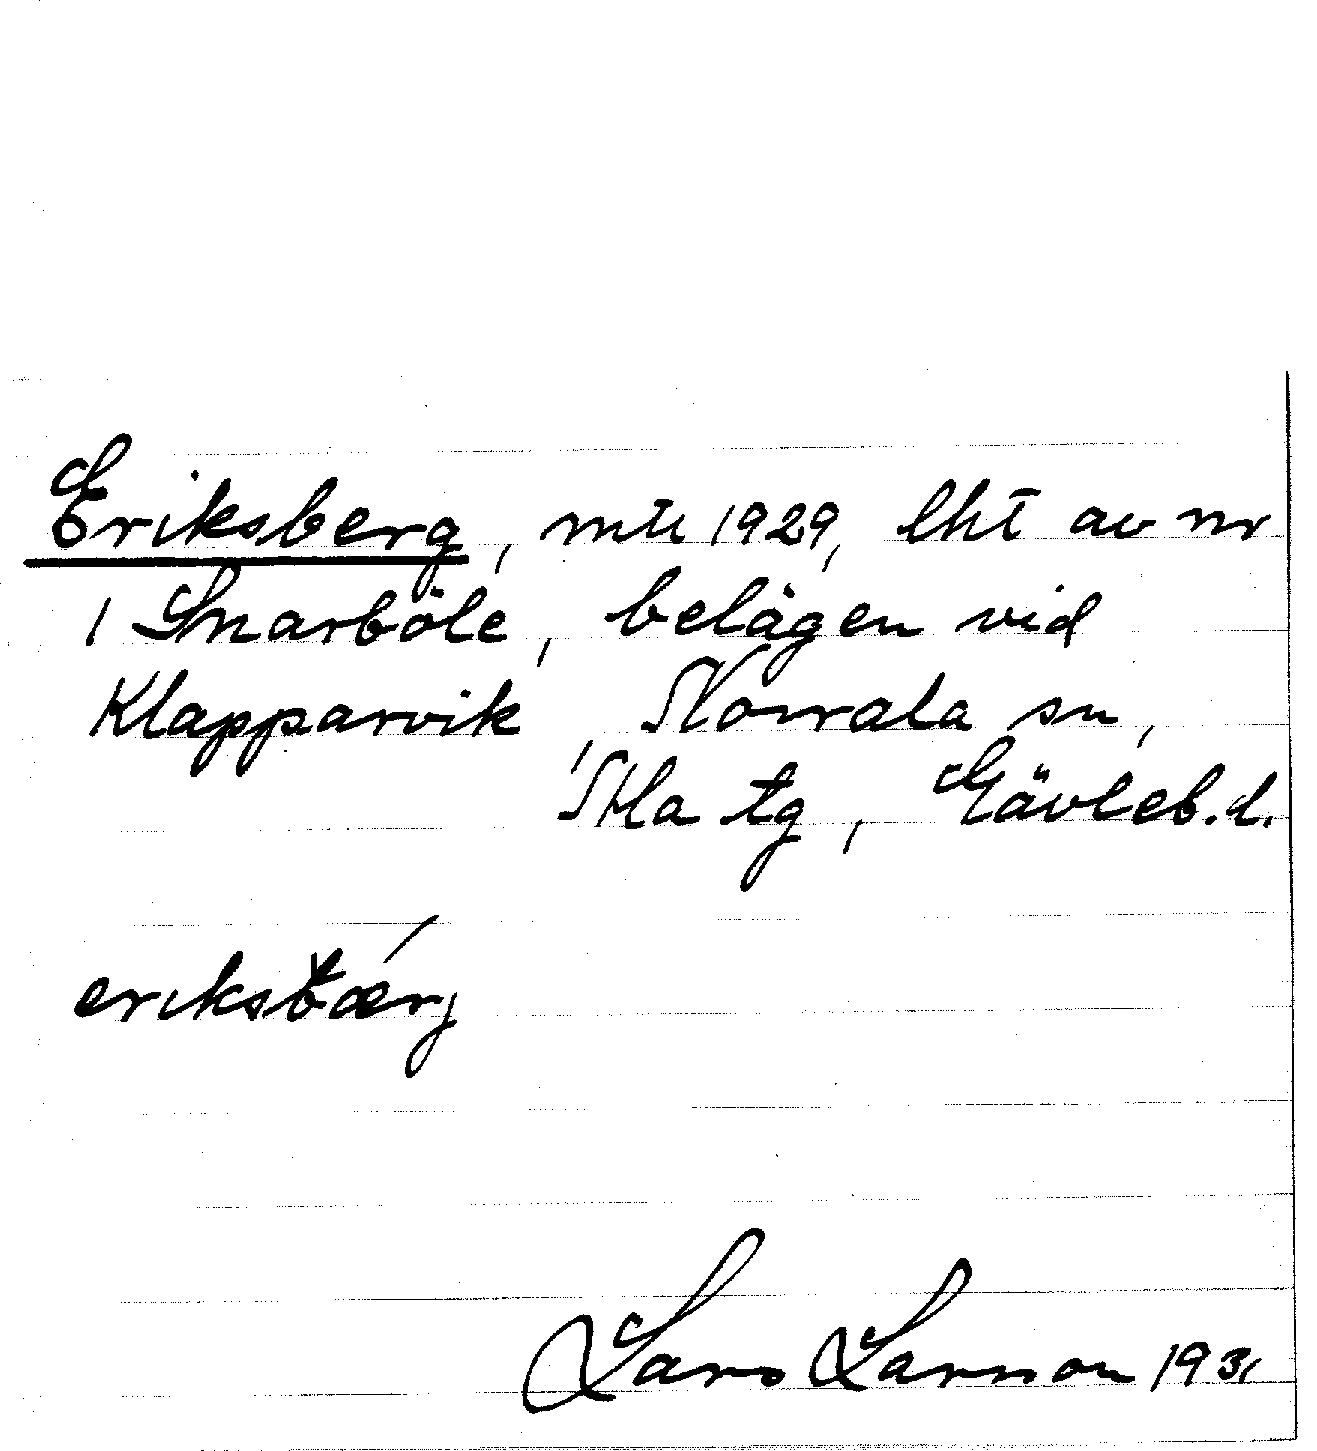 Eriksberg, mtl 1929, lht av nr
1 Snarböle, belägen vid
Klapparvik, Norrala sn,
Nla tg, Gävleb. l.
eriksbærj
Lars Larsson 1931